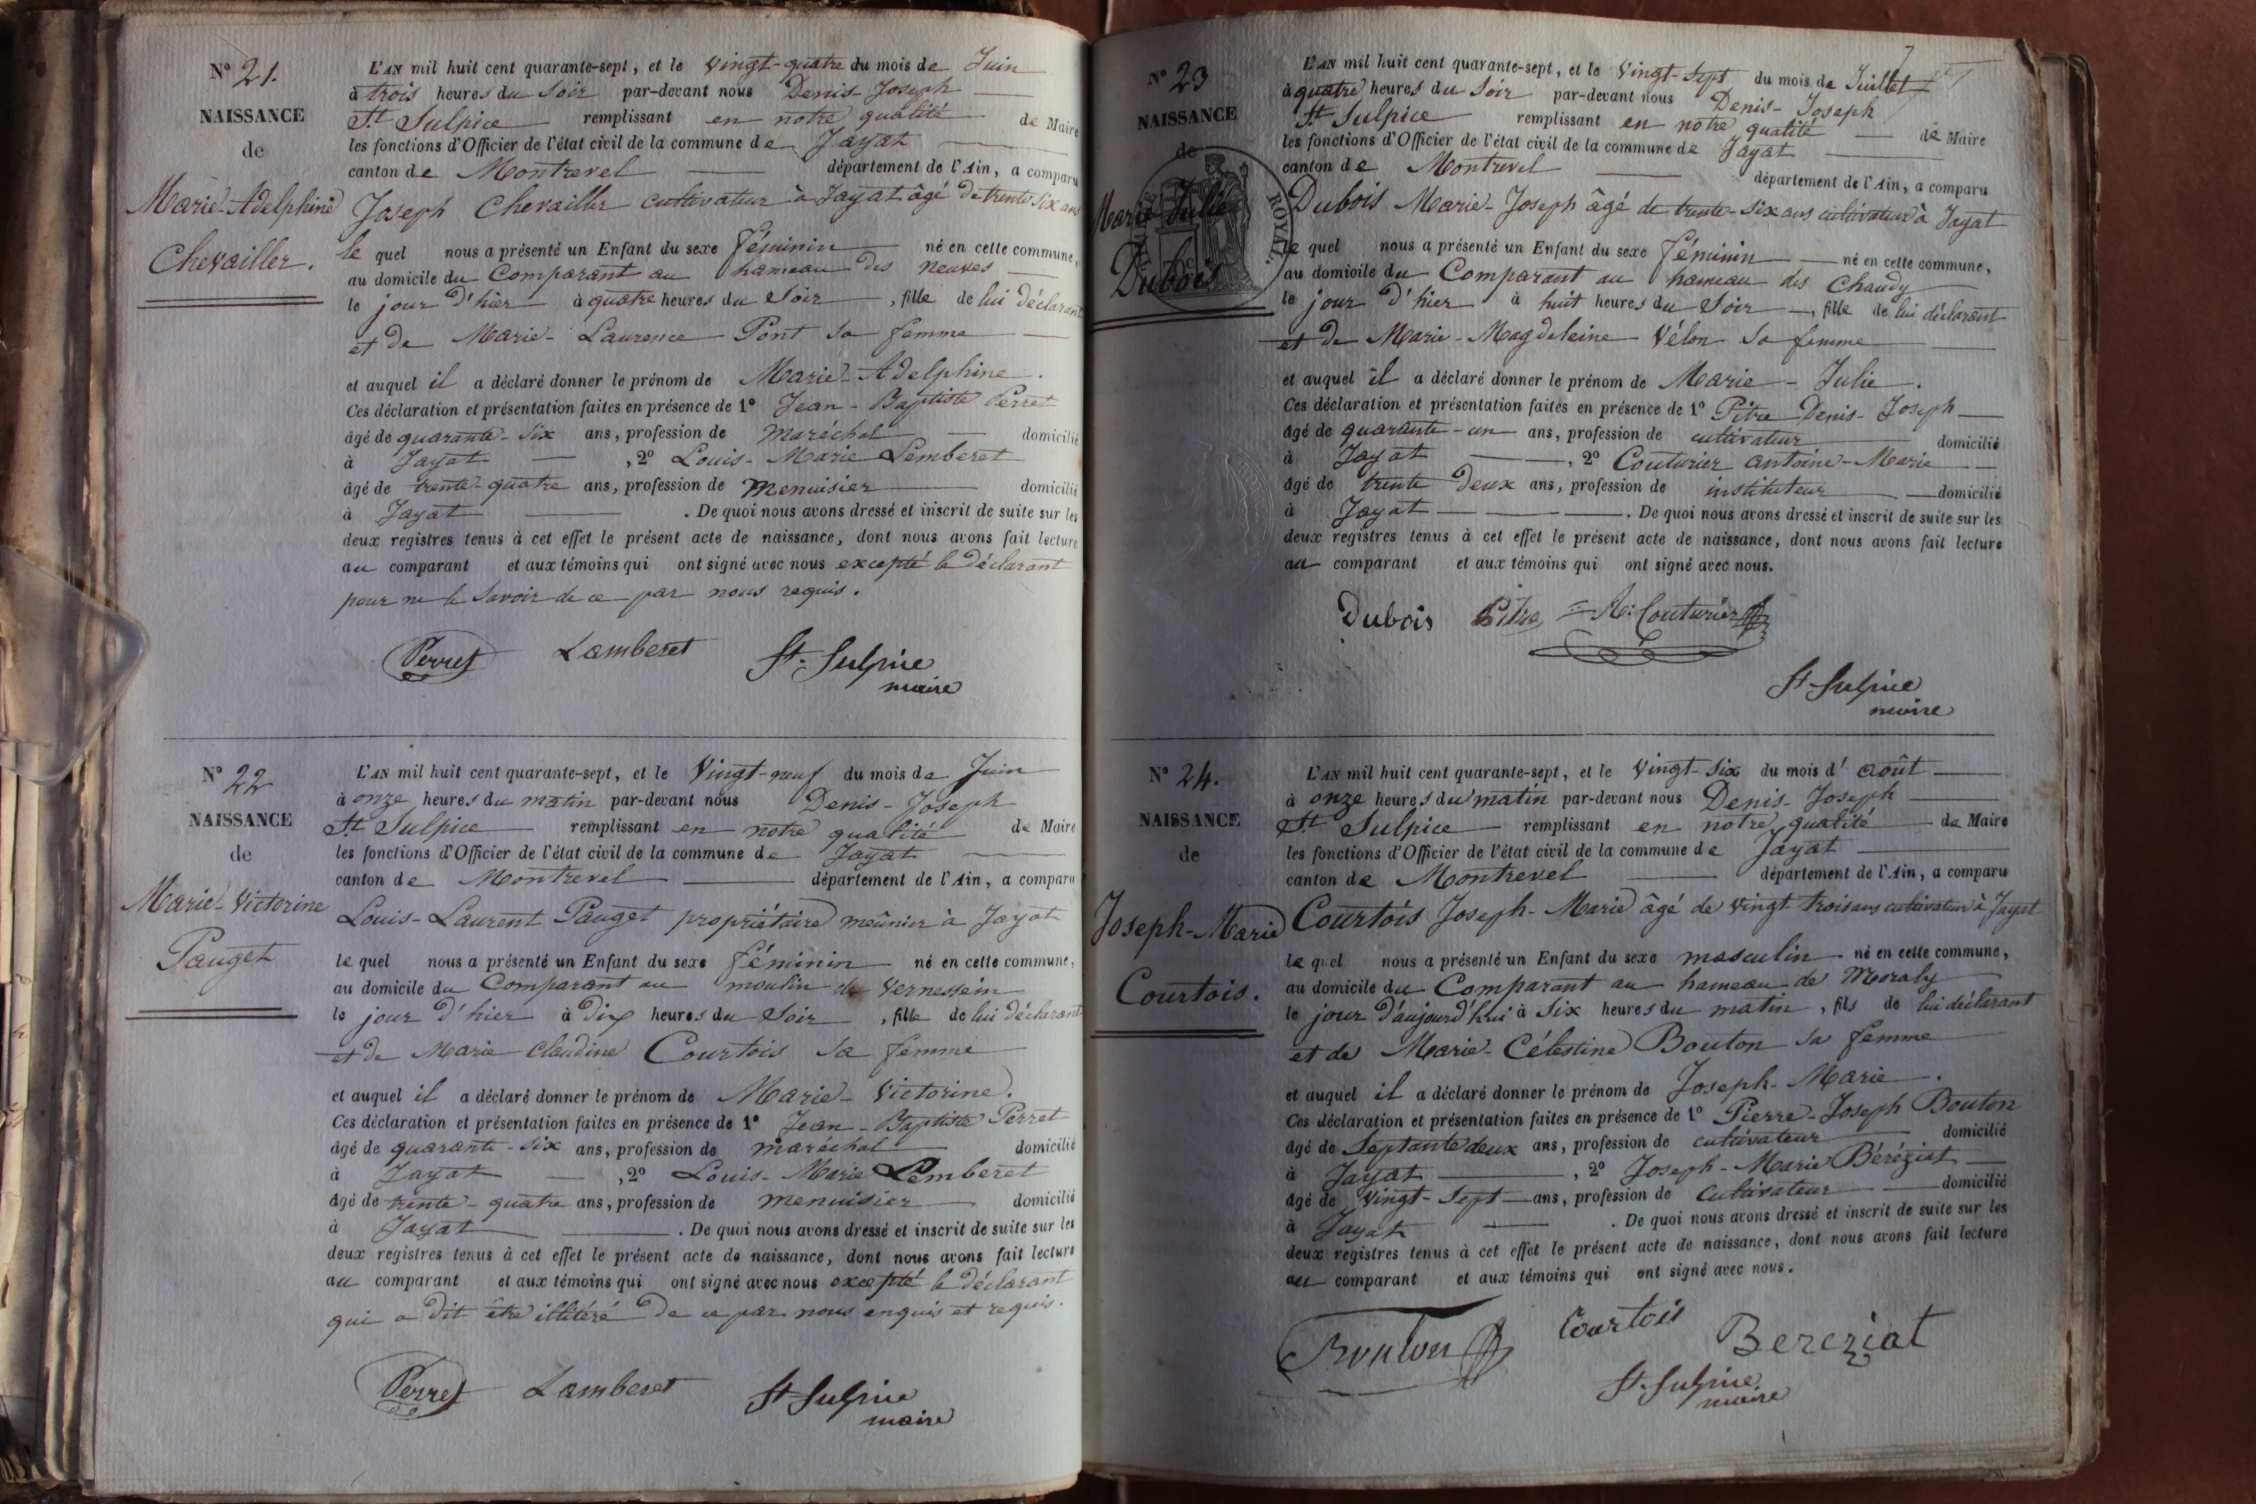 N° 21.
NAISSANCE
de
Marie-Adelphine
Chevailler.
L'AN mil huit cent quarante-sept, et le vingt-quatre du mois de Juin
à trois heures du Soir par-devant nous Denis Joseph
St Sulpice remplissant en notre qualité de Maire
les fonctions d'Officier de l'état civil de la commune de Jayat
canton de Montrevel département de l'Ain, a comparu
Joseph Chevailler cultivateur à Jayat âgé de trente six ans
le quel nous a présenté un Enfant du sexe féminin né en cette commune,
au domicile du Comparant au hameau des neuves
le jour d'hier à quatre heures du Soir, fille de lui déclarant
et de Marie-Laurence Pont sa femme
et auquel il a déclaré donner le prénom de Marie-Adelphine.
Ces déclaration et présentation faites en présence de 1° Jean-Baptiste Perret
âgé de quarante-six ans, profession de maréchal domicilié
à Jayat, 2° Louis-Marie Lemberet
âgé de trente-quatre ans, profession de menuisier domicilié
à Jayat. De quoi nous avons dressé et inscrit de suite sur les
deux registres tenus à cet effet le présent acte de naissance, dont nous avons fait lecture
au comparant et aux témoins qui ont signé avec nous excepté le déclarant
pour ne le savoir de ce par nous requis.
Perret Lamberet St-Sulpice
maire
N° 22
NAISSANCE
de
Marie-Victorine
Pauget
L'AN mil huit cent quarante-sept, et le Vingt-neuf du mois de Juin
à onze heures du matin par-devant nous Denis-Joseph
St Sulpice remplissant en notre qualité de Maire
les fonctions d'Officier de l'état civil de la commune de Jayat
canton de Montrevel département de l'Ain, a comparu
Louis-Laurent Pauget propriétaire meûnier à Jayat
le quel nous a présenté un Enfant du sexe féminin né en cette commune,
au domicile du Comparant au moulin de Vernessein
le jour d'hier à Dix heures du Soir, fille de lui déclarant
et de Marie Claudine Courtois sa femme
et auquel il a déclaré donner le prénom de Marie-Victorine.
Ces déclaration et présentation faites en présence de 1° Jean-Baptiste Perret
âgé de quarante-six ans, profession de maréchal domicilié
à Jayat, 2° Louis-Marie Lemberet
âgé de trente-quatre ans, profession de menuisier domicilié
à Jayat. De quoi nous avons dressé et inscrit de suite sur les
deux registres tenus à cet effet le présent acte de naissance, dont nous avons fait lecture
au comparant et aux témoins qui ont signé avec nous excepté le déclarant
qui a dit être illitéré de ce par nous enquis et requis.
Perret Lamberet St Sulpice
maire
7
N° 23
NAISSANCE
de
Marie Julie
Dubois
ROYAL.
L'AN mil huit cent quarante-sept, et le Vingt-sept du mois de Juillet
à quatre heures du Soir par-devant nous Denis-Joseph
St Sulpice remplissant en notre qualité de Maire
les fonctions d'Officier de l'état civil de la commune de Jayat
canton de Montrevel département de l'Ain, a comparu
Dubois Marie-Joseph âgé de trente-six ans cultivateur à Jayat
le quel nous a présenté un Enfant du sexe féminin né en cette commune,
au domicile du Comparant au hameau des Chaudy
le jour d'hier à huit heures du Soir, fille de lui déclarant
et de Marie-Magdeleine Vélon sa femme
et auquel il a déclaré donner le prénom de Marie-Julie.
Ces déclaration et présentation faites en présence de 1° Pitre Denis-Joseph
âgé de quarante-un ans, profession de cultivateur domicilié
à Jayat, 2° Couturier antoine-Marie
âgé de trente deux ans, profession de instituteur domicilié
à Jayat. De quoi nous avons dressé et inscrit de suite sur les
deux registres tenus à cet effet le présent acte de naissance, dont nous avons fait lecture
au comparant et aux témoins qui ont signé avec nous.
Dubois Pitre A: Couturier
St Sulpice
maire
N° 24.
NAISSANCE
de
Joseph-Marie
Courtois.
L'AN mil huit cent quarante-sept, et le Vingt-six du mois d'août
à onze heures du matin par-devant nous Denis-Joseph
St Sulpice remplissant en notre qualité de Maire
les fonctions d'Officier de l'état civil de la commune de Jayat
canton de Montrevel département de l'Ain, a comparu
Courtois Joseph-Marie âgé de vingt trois ans cultivateur à Jayat
le quel nous a présenté un Enfant du sexe masculin né en cette commune,
au domicile du Comparant au hameau de Moraly
le jour d'aujourd'hui à Six heures du matin, fils de lui déclarant
et de Marie-Célestine Bouton sa femme
et auquel il a déclaré donner le prénom de Joseph-Marie.
Ces déclaration et présentation faites en présence de 1° Pierre-Joseph Bouton
âgé de Septante deux ans, profession de cultivateur domicilié
à Jayat, 2° Joseph-Marie Béréziat
âgé de Vingt-sept ans, profession de Cultivateur domicilié
à Jayat. De quoi nous avons dressé et inscrit de suite sur les
deux registres tenus à cet effet le présent acte de naissance, dont nous avons fait lecture
au comparant et aux témoins qui ont signé avec nous.
Bouton Courtois Bereziat
St. Sulpice
maire